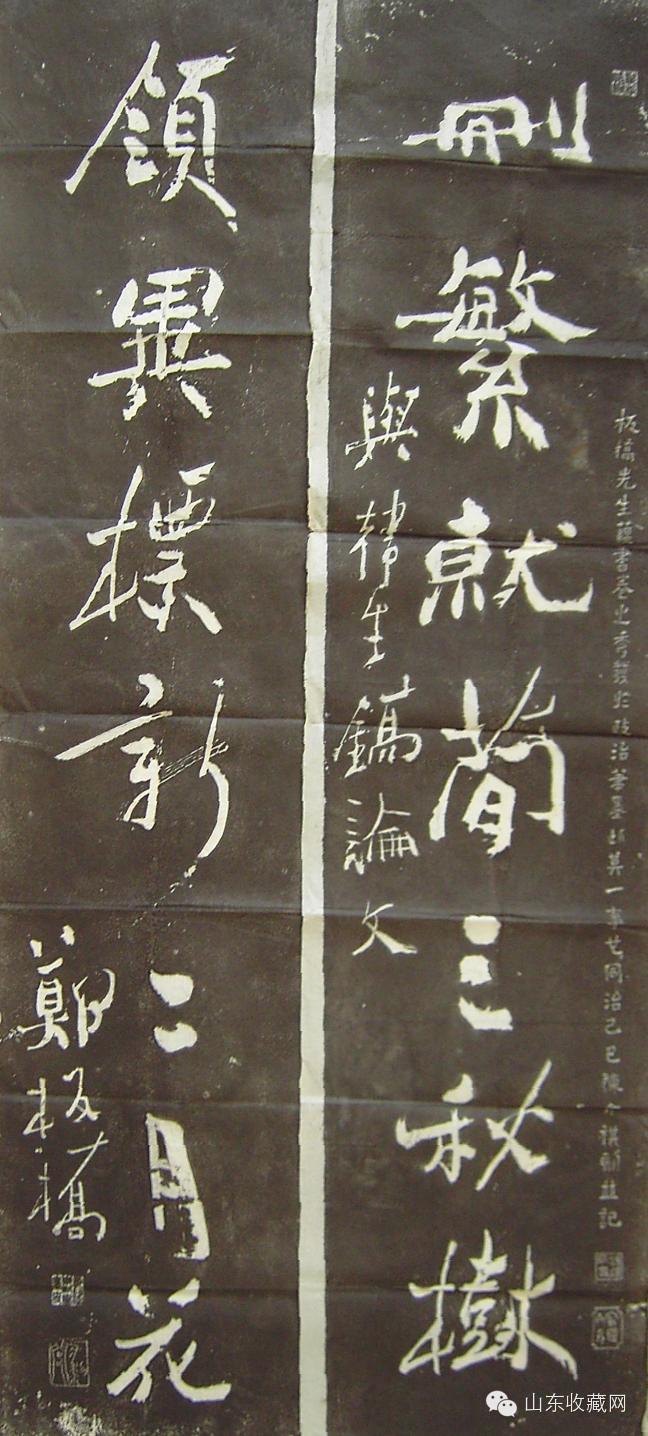 板橋先生蘊書卷之秀發於政治筆墨特其一事也同治己巳陳介祺勒並記
刪繁就簡三秋樹
與韓生鎬論文
領異標新二月花
鄭板橋
山东收藏网